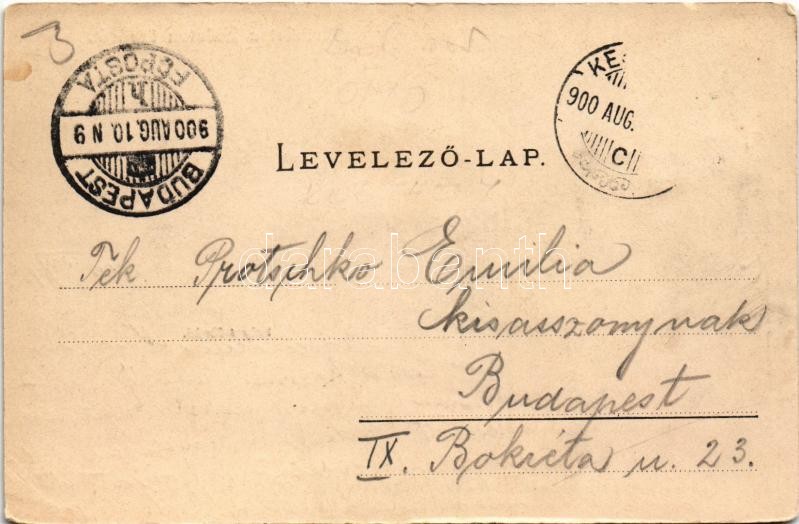 3
BUDAPEST
900 AUG. 10. N 9
FŐPOSTA
KE
900 AUG.
C
LEVELEZŐ-LAP.
darabanth
Tek Protschko Emilia
kisasszonynak
Budapest
IX. Bokréta u. 23.